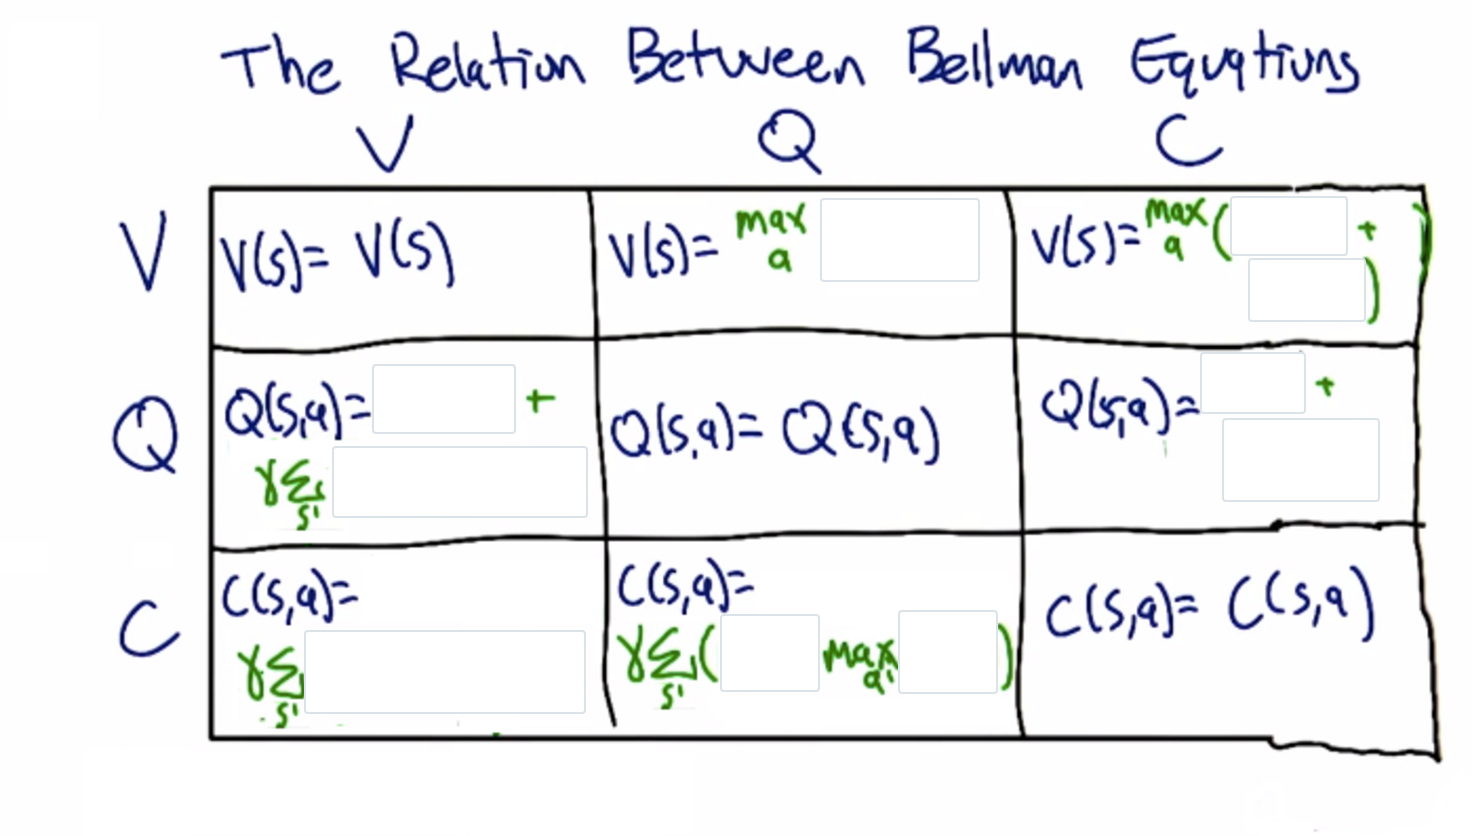 The Relation Between Bellman Equations
V Q C
V V(s)= V(s) V(s)= max a V(s)= max a ( + )
)
Q Q(s,a)= + Q(s,a)= Q(s,a) Q(s,a)= +
γΣ s'
C C(s,a)= C(s,a)= C(s,a)= C(s,a)
γΣ s' γΣ s' ( max a' )